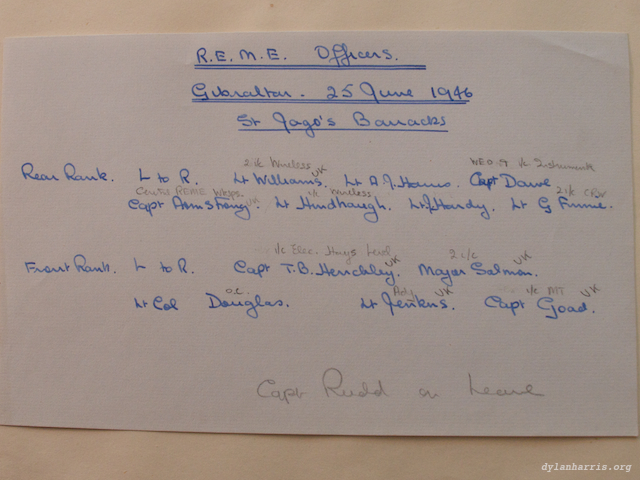 R.E.M.E. Officers.
Gibraltar - 25 June 1946
St Jago's Barracks
2 i/c Wireless UK WEO i/c Instruments
Rear Rank. L to R. Lt Williams. Lt A.J. Capt Dawe
REME Wksps. UK i/c Wireless 2 i/c
Capt Armstrong. Lt Hindhaugh. Lt J Hardy. Lt G
i/c Elec. UK 2 i/c
Front Rank. L to R. Capt T.B. Henchley. Major Salmon. UK
O.C. Adj UK i/c MT UK
Lt Col Douglas. Lt Jenkins. Capt Goad.
Capt Rudd on Leave
dylanharris.org